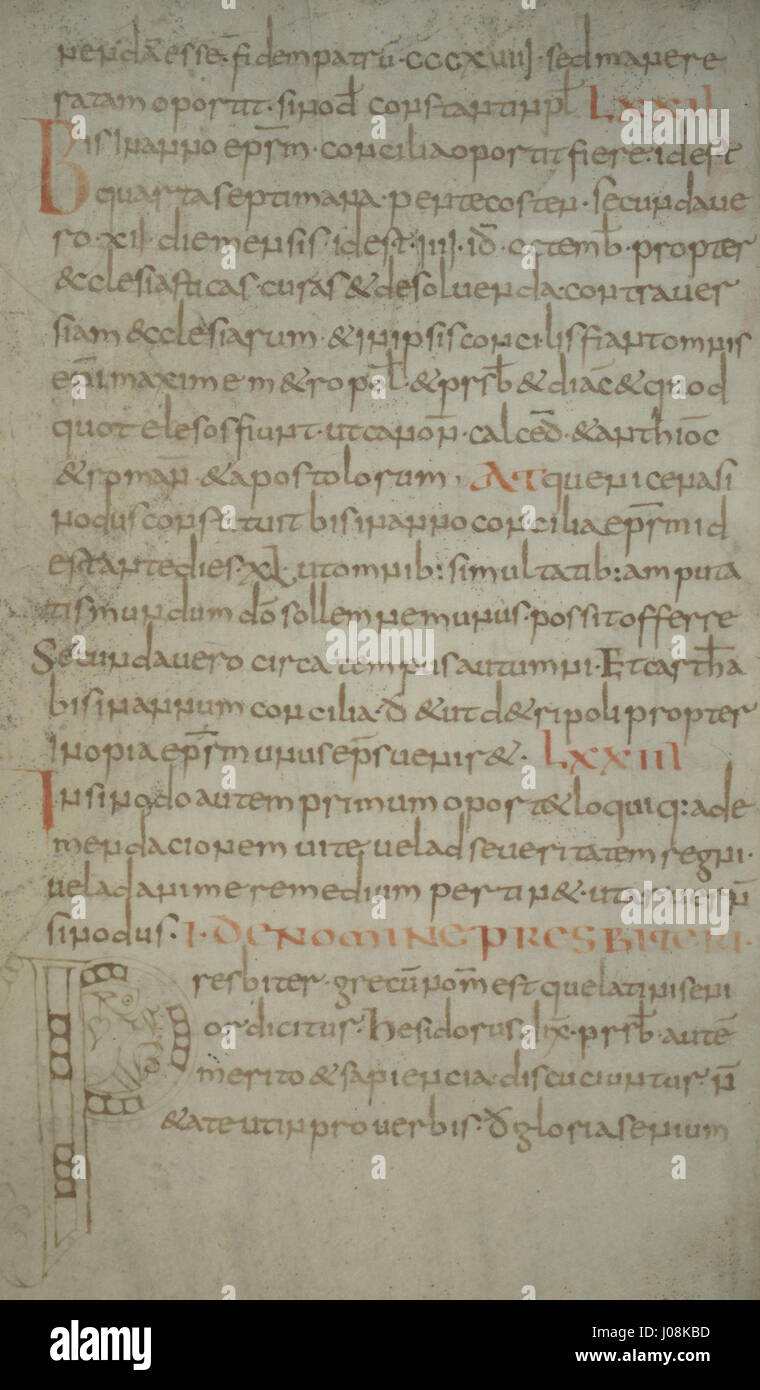 nendā esse fidem patrū · cccxuiii · sed manere
ratam oportit · sinod̄ constantinpl̄ LXXII
Bis in anno epsm̄ · concilia oportit fiere · id est
quarta septimana · pentecosten · secunda ue
ro · xii · die mensis · id est · iiii · id̄ · octemb̄ · propter
& cclesiasticas · curas & desoluenda · contrauer
siam & cclesiarum · & in ipsis concilis fiant omnis
maxime m & ropl̄ · & prsb̄ & diāc & quod
quot eles os fiunt · ut canoñ · calced̄ · & anthiōc
& romañ · & apostolorum · At que nicena si
nodus constituit bis in anno concilia epsm̄ id
est ante dies · xl · ut omnib: simultatib: amputa
tis mundum dō sollemne munus · possit offerre
Secunda uero circa tempus autumni · Et carthā
bis in annum concilia · d̄ & ut d & ripoli propter
inopia epsm̄ unus eps̄ uenis & · LXXIII
In sinodo autem primum oport & loqui q: ad e
mendacionem uite uel ad seueritatem regni ·
uel ad anime remedium pertin & · ut
sinodus · I · DE NOMINE PRESBITERI ·
Presbiter · grecū nom̄ est que latini seni
or dicitur · hesidorus · dix̄ · prsb̄ · autē
merito & sapiencia · discuciuntur · ñ
& ate ut in prouerbis · d̄ gloria senium
alamy
Image ID: J08KBD
www.alamy.com